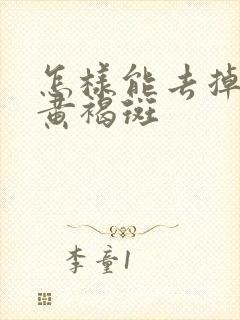 怎样能去掉
黄褐斑
李童1